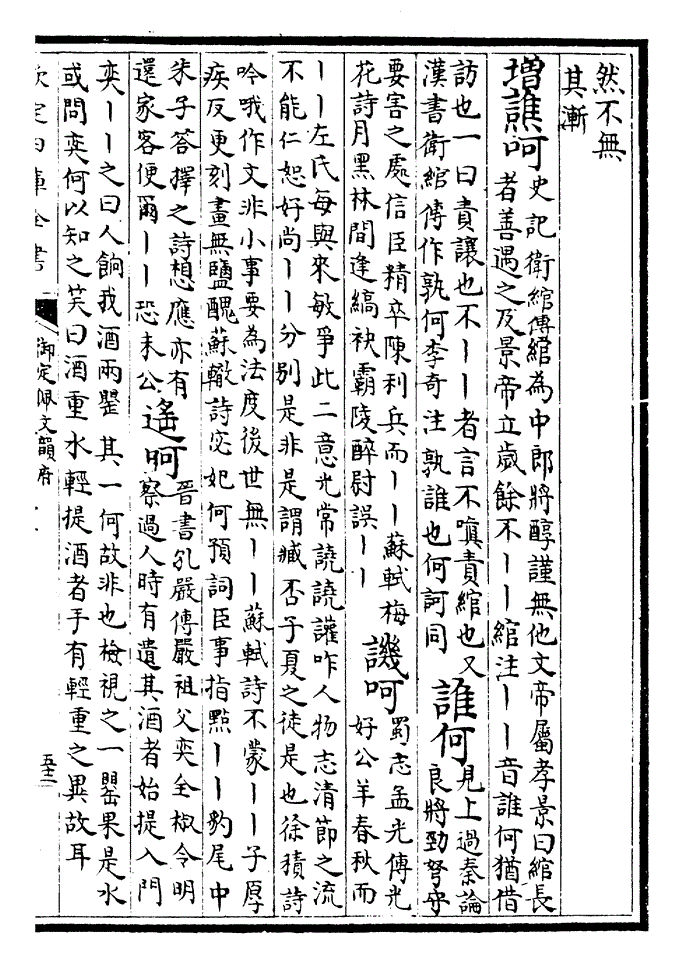 然不無
其漸
增譙呵史記衛綰傳綰為中郎將醇謹無他文帝屬孝景曰綰長
者善遇之及景帝立歲餘不丨丨綰注丨丨音誰何猶借
訪也一曰責讓也不丨丨者言不嗔責綰也又
漢書衛綰傳作孰何李奇注孰誰也何訶同
誰何見上過秦論
良將勁弩守
要害之處信臣精卒陳利兵而丨丨蘇軾梅
花詩月黑林間逢縞袂霸陵醉尉誤丨丨
譏呵蜀志孟光傳光
好公羊春秋而
丨丨左氏每與來敏爭此二意光常譊譊讙咋人物志清節之流
不能仁恕好尚丨丨分別是非是謂臧否子夏之徒是也徐積詩
吟哦作文非小事要為法度後世無丨丨蘇軾詩不蒙丨丨子厚
疾反更刻畫無鹽醜蘇轍詩宓妃何預詞臣事指點丨丨豹尾中
朱子答擇之詩想應亦有
還家客便爾丨丨恐未公
遙呵晉書孔嚴傳嚴祖父奕全椒令明
察過人時有遺其酒者始提入門
奕丨丨之曰人餉我酒兩甖其一何故非也檢視之一甖果是水
或問奕何以知之笑曰酒重水輕提酒者手有輕重之異故耳
欽定四庫全書
御定佩文韻府